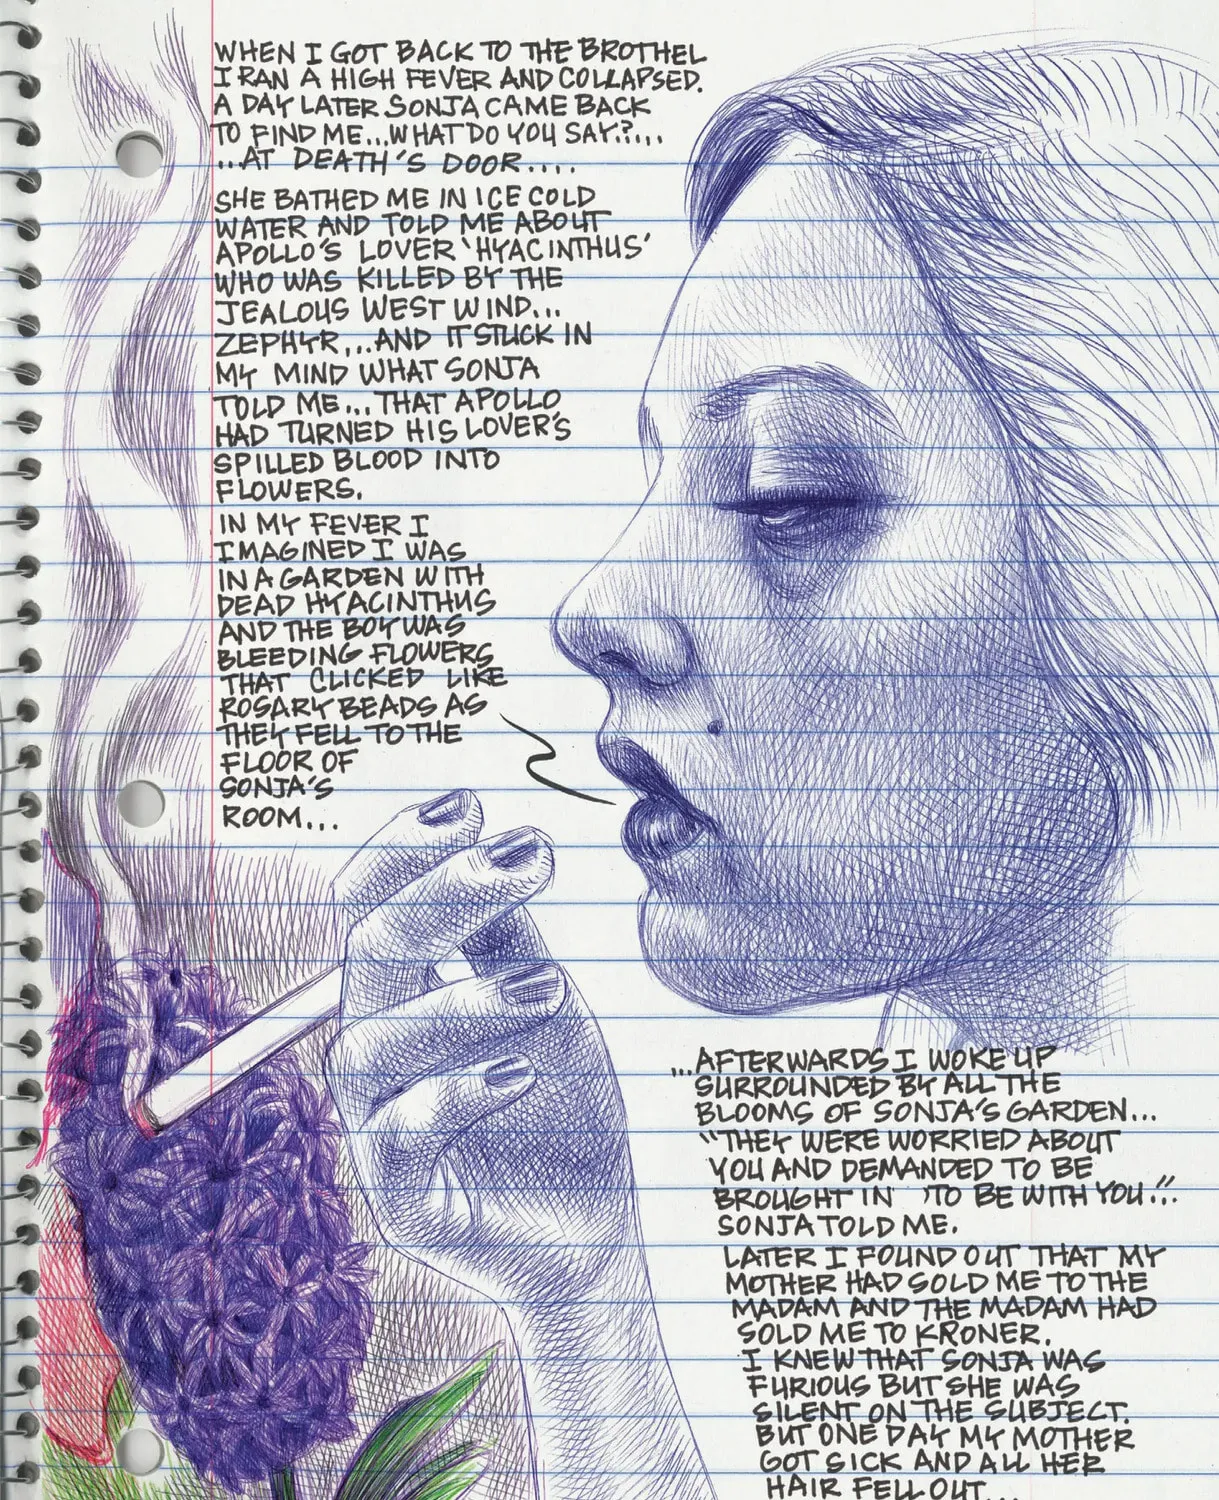 WHEN I GOT BACK TO THE BROTHEL
I RAN A HIGH FEVER AND COLLAPSED.
A DAY LATER SONJA CAME BACK
TO FIND ME...WHAT DO YOU SAY?...
...AT DEATH'S DOOR....
SHE BATHED ME IN ICE COLD
WATER AND TOLD ME ABOUT
APOLLO'S LOVER 'HYACINTHUS'
WHO WAS KILLED BY THE
JEALOUS WEST WIND...
ZEPHYR...AND IT STUCK IN
MY MIND WHAT SONJA
TOLD ME...THAT APOLLO
HAD TURNED HIS LOVER'S
SPILLED BLOOD INTO
FLOWERS.
IN MY FEVER I
IMAGINED I WAS
IN A GARDEN WITH
DEAD HYACINTHUS
AND THE BOY WAS
BLEEDING FLOWERS
THAT CLICKED LIKE
ROSARY BEADS AS
THEY FELL TO THE
FLOOR OF
SONJA'S
ROOM...
...AFTERWARDS I WOKE UP
SURROUNDED BY ALL THE
BLOOMS OF SONJA'S GARDEN...
"THEY WERE WORRIED ABOUT
YOU AND DEMANDED TO BE
BROUGHT IN 'TO BE WITH YOU'..."
SONJA TOLD ME.
LATER I FOUND OUT THAT MY
MOTHER HAD SOLD ME TO THE
MADAM AND THE MADAM HAD
SOLD ME TO KRONER.
I KNEW THAT SONJA WAS
FURIOUS BUT SHE WAS
SILENT ON THE SUBJECT.
BUT ONE DAY MY MOTHER
GOT SICK AND ALL HER
HAIR FELL OUT...